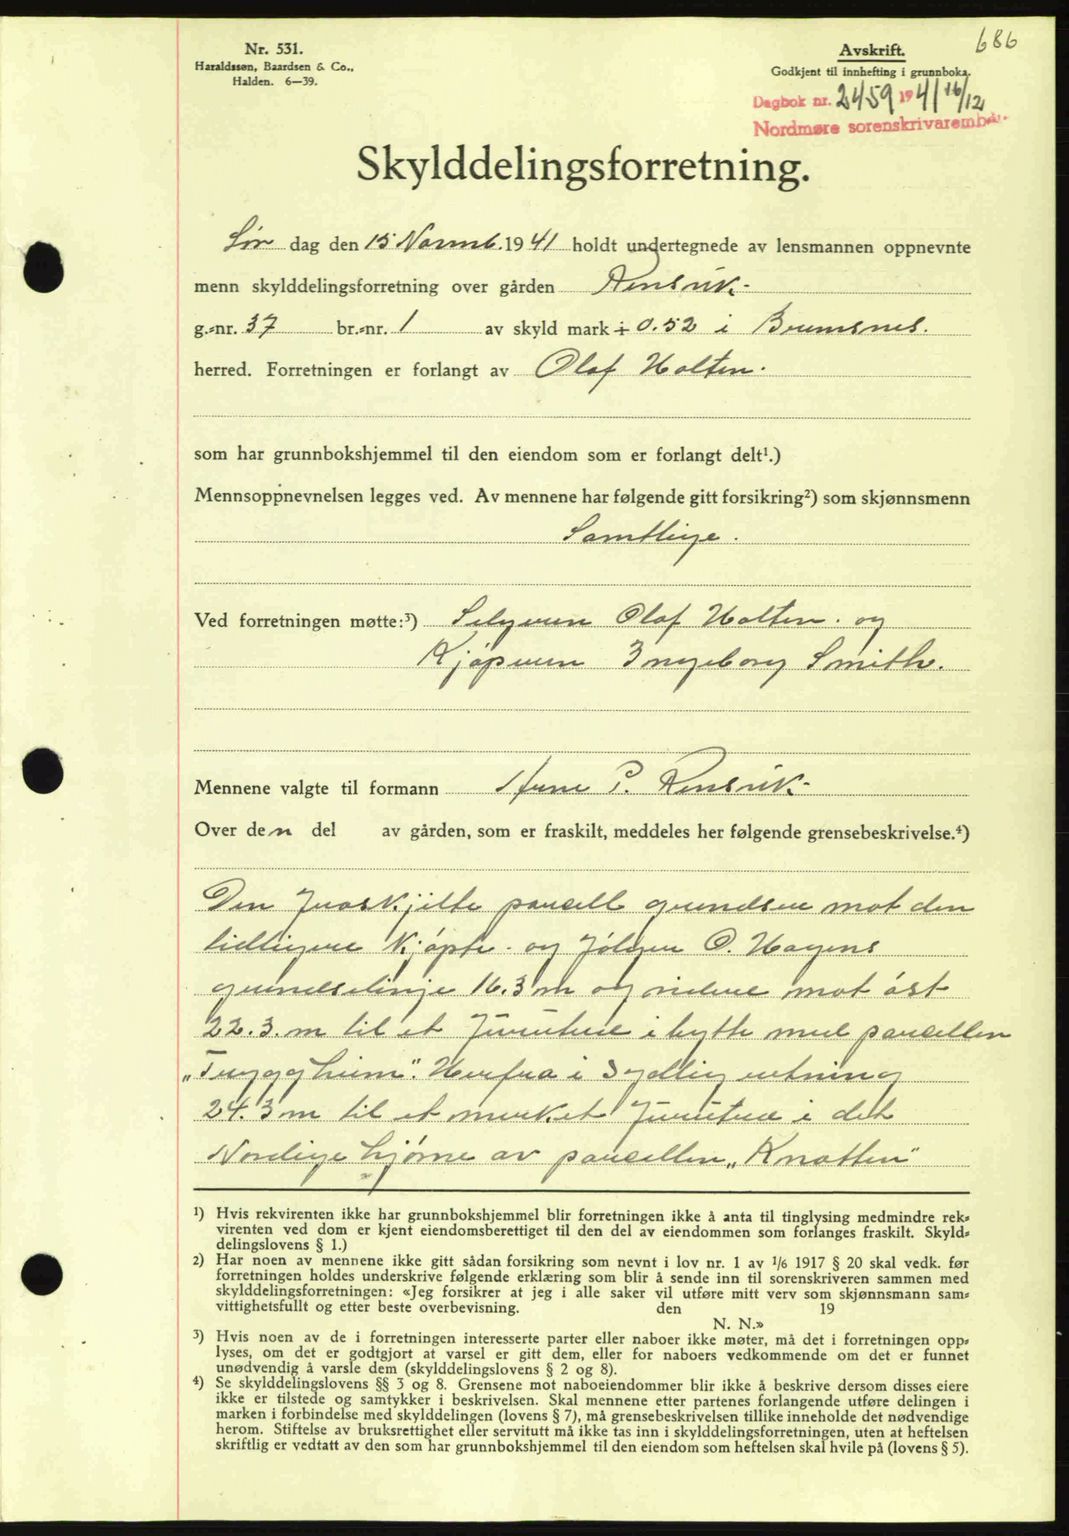 686
Nr. 531.
Haraldssøn, Baardsen & Co.,
Halden. 6—39.
Avskrift.
Godkjent til innhefting i grunnboka.
Dagbok nr. 2459 1941 16/12
Nordmøre sorenskrivaremb
Skylddelingsforretning.
Lør dag den 15 Novmb. 1941 holdt undertegnede av lensmannen oppnevnte
menn skylddelingsforretning over gården Rensvik.
g.=nr. 37 br.=nr. 1 av skyld mark ÷ 0.52 i Bremsnes.
herred. Forretningen er forlangt av Olaf Holten.
som har grunnbokshjemmel til den eiendom som er forlangt delt¹.)
Mennsoppnevnelsen legges ved. Av mennene har følgende gitt forsikring²) som skjønnsmenn
Samtlige.
Ved forretningen møtte:³) Selgeren Olaf Holten. og
Kjøperen Ingeborg Smith.
Mennene valgte til formann Arne P. Rensvik.
Over den del av gården, som er fraskilt, meddeles her følgende grensebeskrivelse.⁴)
Den fraskjilte parcell grendser mot den
tidligere kjøpte og følger O. Hagens
grendselinje 16.3 m og videre mot øst
22.3. m til et furutre i bytte med parcellen
„Tryggheim". Herfra i sydlig retning
24.3 m til et merket furutre i det
Nordlige hjørne av parcellen „Knatten"
¹) Hvis rekvirenten ikke har grunnbokshjemmel blir forretningen ikke å anta til tinglysing medmindre rek=
virenten ved dom er kjent eiendomsberettiget til den del av eiendommen som forlanges fraskilt. Skyld=
delingslovens § 1.)
²) Har noen av mennene ikke gitt sådan forsikring som nevnt i lov nr. 1 av 1/6 1917 § 20 skal vedk. før
forretningen holdes underskrive følgende erklæring som blir å sende inn til sorenskriveren sammen med
skylddelingsforretningen: «Jeg forsikrer at jeg i alle saker vil utføre mitt verv som skjønnsmann sam=
vittighetsfullt og etter beste overbevisning. den 19
N. N.»
³) Hvis noen av de i forretningen interesserte parter eller naboer ikke møter, må det i forretningen opp=
lyses, om det er godtgjort at varsel er gitt dem, eller for naboers vedkommende om det er funnet
unødvendig å varsle dem (skylddelingslovens § 2 og 8).
⁴) Se skylddelingslovens §§ 3 og 8. Grensene mot naboeiendommer blir ikke å beskrive dersom disses eiere
ikke er tilstede og samtykker i beskrivelsen. Skal mennene etter partenes forlangende utføre delingen i
marken i forbindelse med skylddelingen (lovens § 7), må grensebeskrivelsen tillike inneholde det nødvendige
herom. Stiftelse av bruksrettighet eller servitutt må ikke tas inn i skylddelingsforretningen, uten at heftelsen
skriftlig er vedtatt av den som har grunnbokshjemmel til den eiendom som heftelsen skal hvile på (lovens § 5).